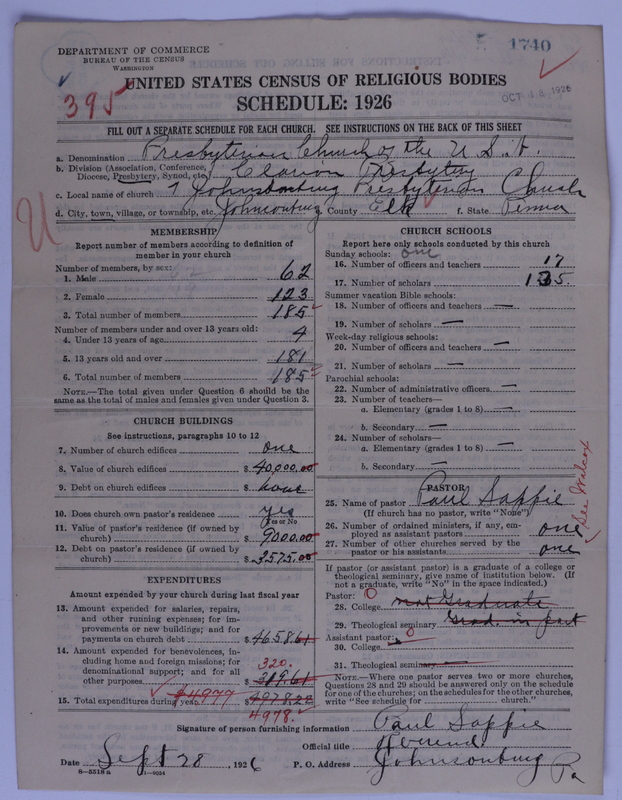 1740
DEPARTMENT OF COMMERCE
BUREAU OF THE CENSUS
WASHINGTON
395
UNITED STATES CENSUS OF RELIGIOUS BODIES
SCHEDULE: 1926
FILL OUT A SEPARATE SCHEDULE FOR EACH CHURCH. SEE INSTRUCTIONS ON THE BACK OF THIS SHEET
a. Denomination Presbyterian Church of the U.S.A.
b. Division (Association, Conference, Diocese, Presbytery, Synod, etc.) Clarion Presbytery
c. Local name of church Johnsonburg Presbyterian Church
d. City, town, village, or township, etc. Johnsonburg County Elk f. State Penna
U
MEMBERSHIP
Report number of members according to definition of
member in your church
Number of members, by sex:
1. Male 62
2. Female 123
3. Total number of members 185
Number of members under and over 13 years old:
4. Under 13 years of age 4
5. 13 years old and over 181
6. Total number of members 185
NOTE.—The total given under Question 6 should be the
same as the total of males and females given under Question 3.
CHURCH BUILDINGS
See instructions, paragraphs 10 to 12
7. Number of church edifices one
8. Value of church edifices $ 40,000.00
9. Debt on church edifices $ none
10. Does church own pastor's residence? yes
Yes or No
11. Value of pastor's residence (if owned by
church) $ 9000.00
12. Debt on pastor's residence (if owned by
church) $ 3575.00
EXPENDITURES
Amount expended by your church during last fiscal year
13. Amount expended for salaries, repairs,
and other running expenses; for im-
provements or new buildings; and for
payments on church debt $ 4658.61
14. Amount expended for benevolences, in-
cluding home and foreign missions; for
denominational support; and for all
other purposes 320. 319.61
15. Total expenditures during year $4977 $ 4978.22
4978.
CHURCH SCHOOLS
Report here only schools conducted by this church
Sunday schools: one
16. Number of officers and teachers 17
17. Number of scholars 135.
Summer vacation Bible schools:
18. Number of officers and teachers —
19. Number of scholars —
Week-day religious schools:
20. Number of officers and teachers —
21. Number of scholars —
Parochial schools:
22. Number of administrative officers —
23. Number of teachers—
a. Elementary (grades 1 to 8) —
b. Secondary —
24. Number of scholars—
a. Elementary (grades 1 to 8) —
b. Secondary —
PASTOR
25. Name of pastor Paul Sappie
(If church has no pastor, write "None")
26. Number of ordained ministers, if any, em-
ployed as assistant pastors one
27. Number of other churches served by the
pastor or his assistants one
See Wilcox
If pastor (or assistant pastor) is a graduate of a college or
theological seminary, give name of institution below. (If
not a graduate, write "No" in the space indicated.)
Pastor: 0
28. College not Graduate
29. Theological seminary Grad. in part
Assistant pastor: 0
30. College —
31. Theological seminary —
NOTE.—Where one pastor serves two or more churches,
Questions 28 and 29 should be answered only on the schedule
for one of the churches; on the schedules for the other churches,
write "See schedule for church."
Signature of person furnishing information Paul Sappie
Official title Reverend
Date Sept 28, 1926 P. O. Address Johnsonburg Pa
8—5518 a